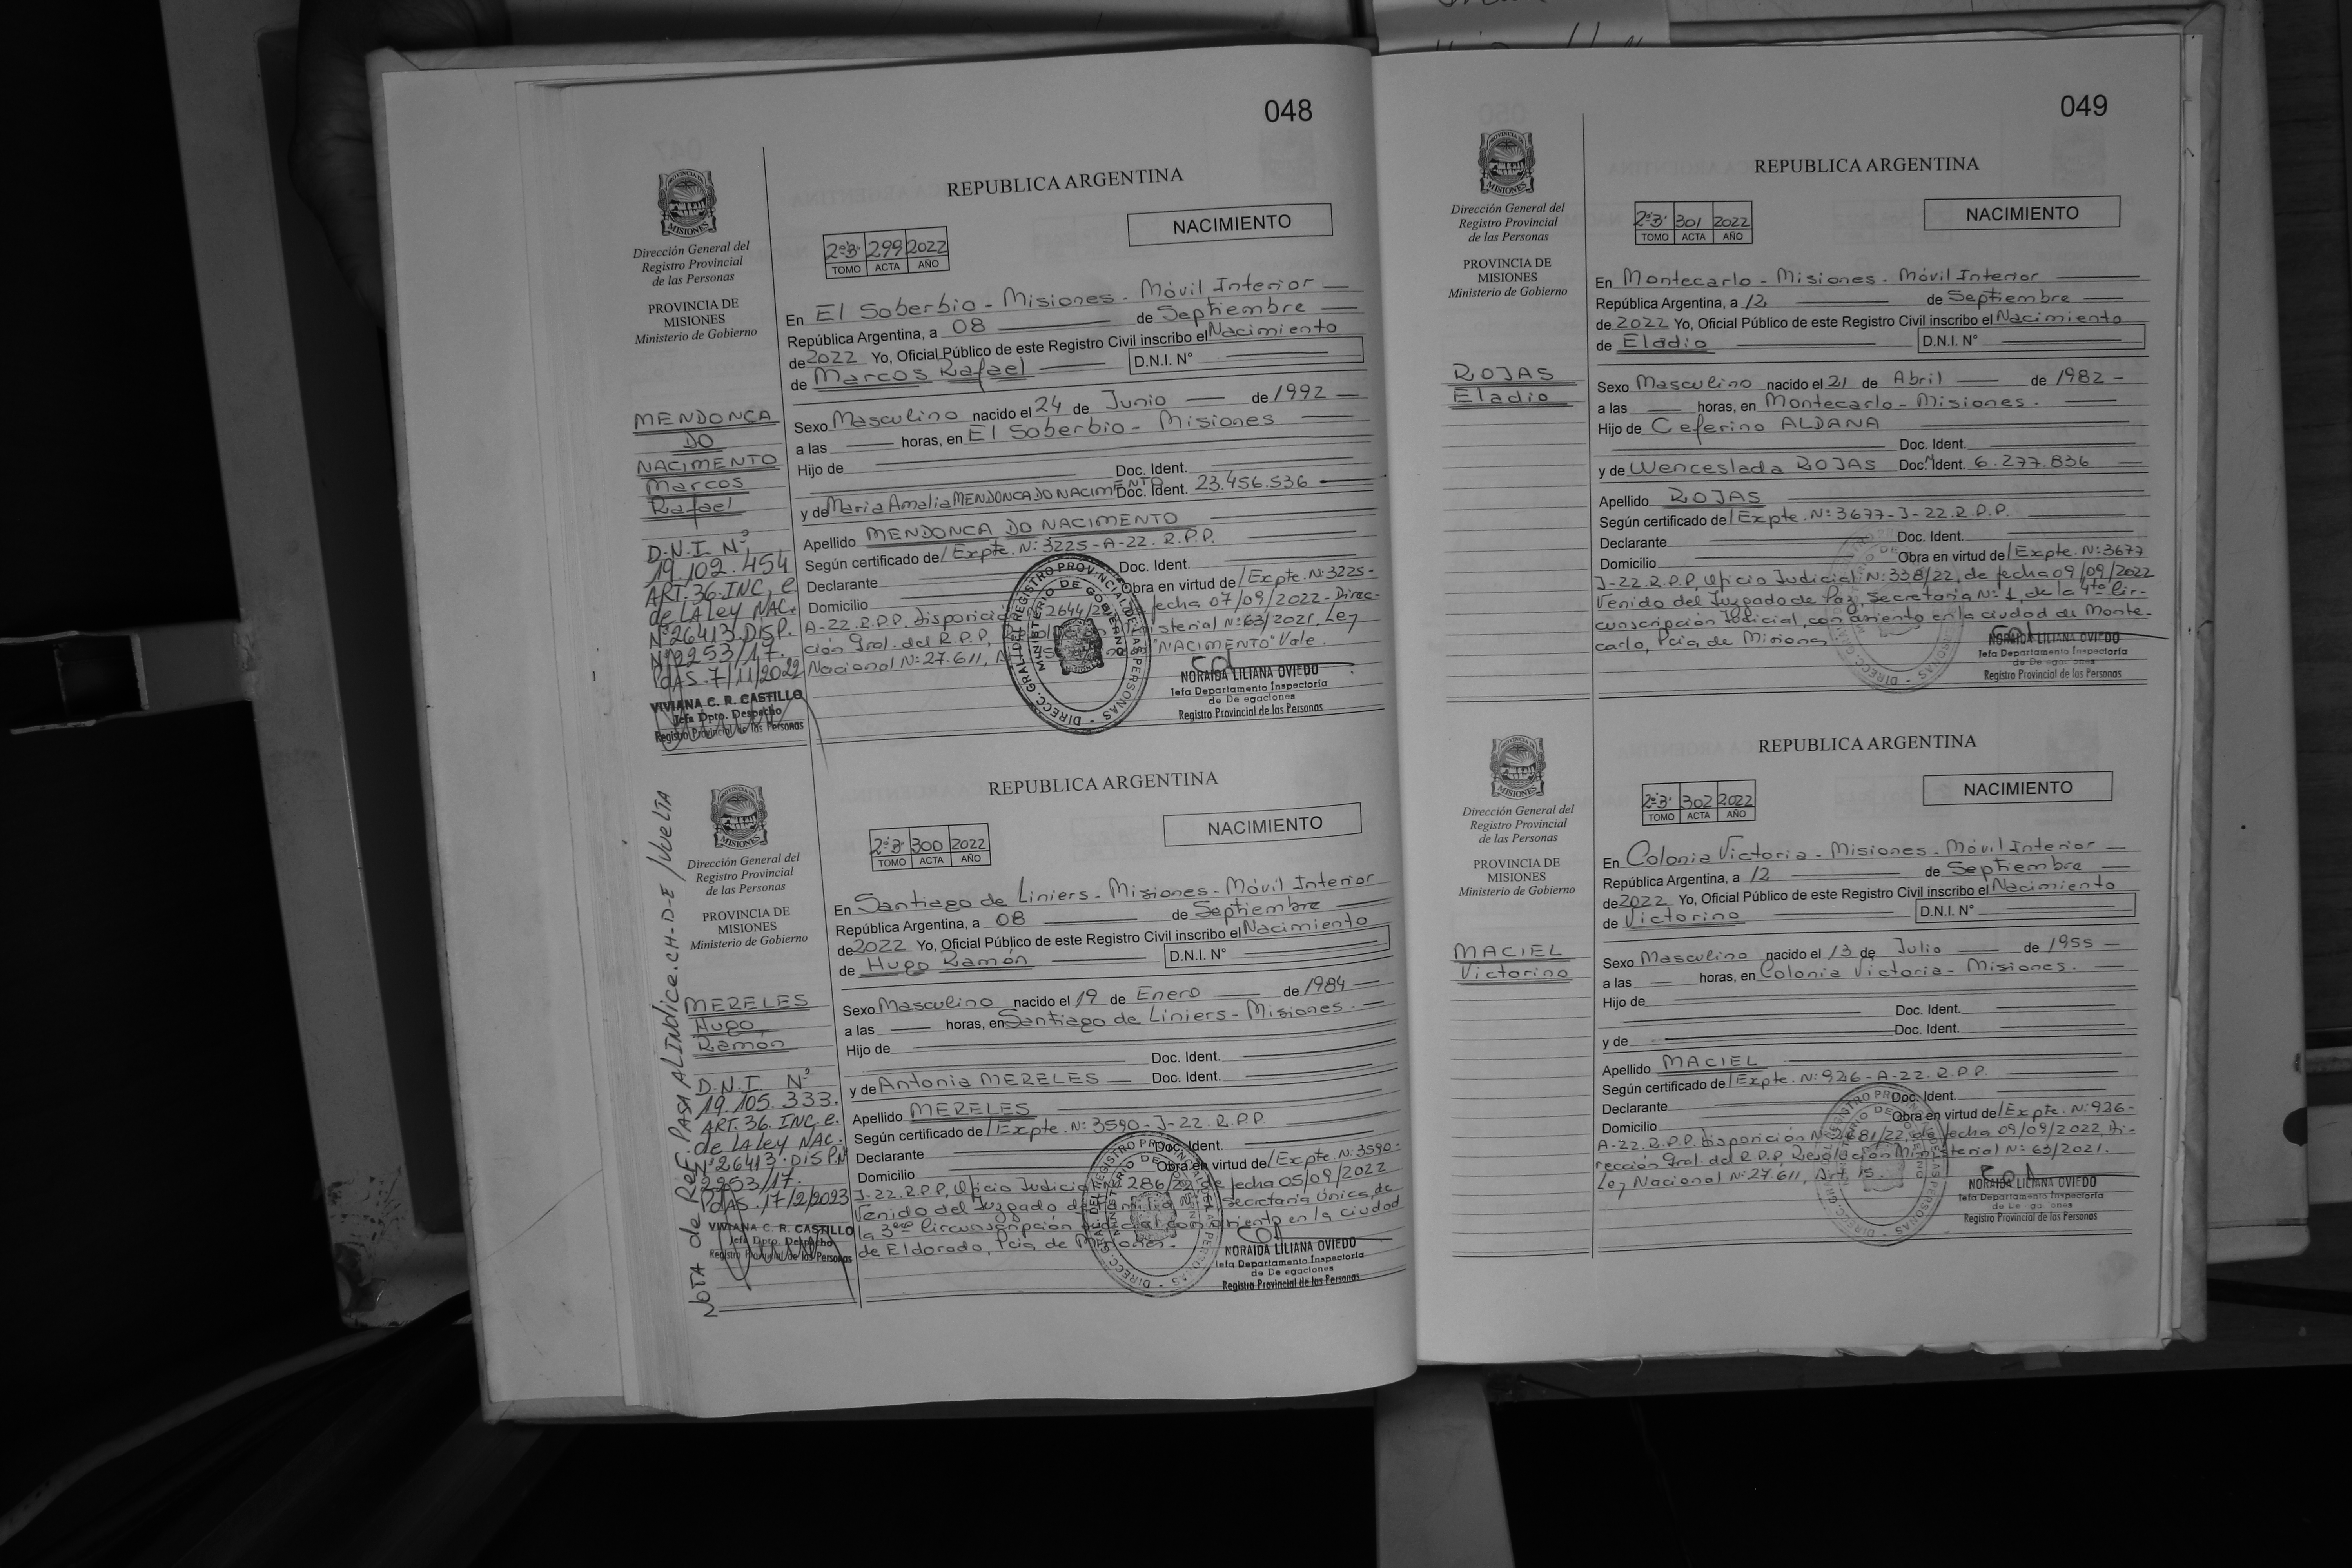 048
PROVINCIA DE
MISIONES
Dirección General del
Registro Provincial
de las Personas
PROVINCIA DE
MISIONES
Ministerio de Gobierno
REPUBLICA ARGENTINA
NACIMIENTO
2º"B" 299 2022
TOMO ACTA AÑO
En El Soberbio - Misiones - Móvil Interior
República Argentina, a 08 de Septiembre
de 2022 Yo, Oficial Público de este Registro Civil inscribo el Nacimiento
de Marcos Rafael D.N.I. N°
Sexo Masculino nacido el 24 de Junio de 1992
a las horas, en El Soberbio - Misiones
Hijo de
Doc. Ident.
y de Maria Amalia MENDONCA DO NACIMENTO Doc. Ident. 23.456.536
Apellido MENDONCA DO NACIMENTO
Según certificado de/ Expte. Nº: 3225-A-22. R.P.P.
Declarante Doc. Ident.
Domicilio Obra en virtud de/ Expte. Nº: 3225-
A-22.R.P.P. Disposición 2644/22 fecha 07/09/2022 - Direc-
ción Gral. del R.P.P, Ministerial Nº: 63/2021, Ley
Nacional Nº: 27.611, "NACIMENTO" Vale.
MENDONCA
DO
NACIMENTO
Marcos
Rafael
D.N.I. Nº
19.102.454
ART. 36. INC. e
de LA Ley NAC.
Nº 26413. DISP.
Nº 2253/17.
PdAS. 7/11/2022
VIVIANA C. R. CASTILLO
Jefa Dpto. Despacho
Registro Provincial de las Personas
DIRECC. GRAL. DEL REGISTRO PROVINCIAL DE LAS PERSONAS
MINISTERIO DE GOBIERNO
NORAIDA LILIANA OVIEDO
Jefa Departamento Inspectoría
de Delegaciones
Registro Provincial de las Personas
NOTA de REF. PASA AL INDICE. CH-D-E /VUELTA
PROVINCIA DE
MISIONES
Dirección General del
Registro Provincial
de las Personas
PROVINCIA DE
MISIONES
Ministerio de Gobierno
REPUBLICA ARGENTINA
NACIMIENTO
2º"B" 300 2022
TOMO ACTA AÑO
En Santiago de Liniers - Misiones - Móvil Interior
República Argentina, a 08 de Septiembre
de 2022 Yo, Oficial Público de este Registro Civil inscribo el Nacimiento
de Hugo Ramón D.N.I. N°
Sexo Masculino nacido el 19 de Enero de 1984
a las horas, en Santiago de Liniers - Misiones.
Hijo de
Doc. Ident.
y de Antonia MERELES Doc. Ident.
Apellido MERELES
Según certificado de/ Expte. Nº: 3590-J-22. R.P.P.
Declarante Doc. Ident.
Domicilio Obra en virtud de/ Expte. Nº: 3590-
J-22.R.P.P, Oficio Judicial 286/22, de fecha 05/09/2022
Venido del Juzgado de Familia Secretaria Única, de
la 3era Circunscripción Judicial con asiento en la ciudad
de Eldorado, Pcia de Misiones.
MERELES
Hugo
Ramón
D.N.I. Nº
19.105.333.
ART. 36. INC. e.
de LA ley NAC.
Nº 26413. DISP. Nº
2253/17.
PdAS. 17/2/2023
VIVIANA C. R. CASTILLO
Jefa Dpto. Despacho
Registro Provincial de las Personas
NORAIDA LILIANA OVIEDO
Jefa Departamento Inspectoría
de Delegaciones
Registro Provincial de las Personas
049
PROVINCIA DE
MISIONES
Dirección General del
Registro Provincial
de las Personas
PROVINCIA DE
MISIONES
Ministerio de Gobierno
REPUBLICA ARGENTINA
NACIMIENTO
2º"B" 301 2022
TOMO ACTA AÑO
En Montecarlo - Misiones - Móvil Interior
República Argentina, a 12 de Septiembre
de 2022 Yo, Oficial Público de este Registro Civil inscribo el Nacimiento
de Eladio D.N.I. N°
Sexo Masculino nacido el 21 de Abril de 1982
a las horas, en Montecarlo - Misiones.
Hijo de Ceferino ALDANA
Doc. Ident.
y de Wenceslada ROJAS Doc. Ident. 6.277.836
Apellido ROJAS
Según certificado de/ Expte. Nº: 3677-J-22.R.P.P.
Declarante Doc. Ident.
Domicilio Obra en virtud de/ Expte. Nº: 3677
J-22.R.P.P, Oficio Judicial Nº: 338/22, de fecha 09/09/2022
Venido del Juzgado de Paz, Secretaria Nº: 1, de la 4ta Cir-
cunscripción Judicial, con asiento en la ciudad de Monte-
carlo, Pcia de Misiones
ROJAS
Eladio
NORAIDA LILIANA OVIEDO
Jefa Departamento Inspectoría
de Delegaciones
Registro Provincial de las Personas
PROVINCIA DE
MISIONES
Dirección General del
Registro Provincial
de las Personas
PROVINCIA DE
MISIONES
Ministerio de Gobierno
REPUBLICA ARGENTINA
NACIMIENTO
2º"B" 302 2022
TOMO ACTA AÑO
En Colonia Victoria - Misiones - Móvil Interior
República Argentina, a 12 de Septiembre
de 2022 Yo, Oficial Público de este Registro Civil inscribo el Nacimiento
de Victorino D.N.I. N°
Sexo Masculino nacido el 13 de Julio de 1955
a las horas, en Colonia Victoria - Misiones.
Hijo de
Doc. Ident.
y de Doc. Ident.
Apellido MACIEL
Según certificado de/ Expte. Nº: 926-A-22. R.P.P.
Declarante Doc. Ident.
Domicilio Obra en virtud de/ Expte. Nº: 926-
A-22.R.P.P. Disposición Nº 2681/22, de fecha 09/09/2022, Di-
rección Gral. del R.P.P, Resolución Ministerial Nº: 63/2021.
Ley Nacional Nº: 27.611, Art. 15.
MACIEL
Victorino
NORAIDA LILIANA OVIEDO
Jefa Departamento Inspectoría
de Delegaciones
Registro Provincial de las Personas